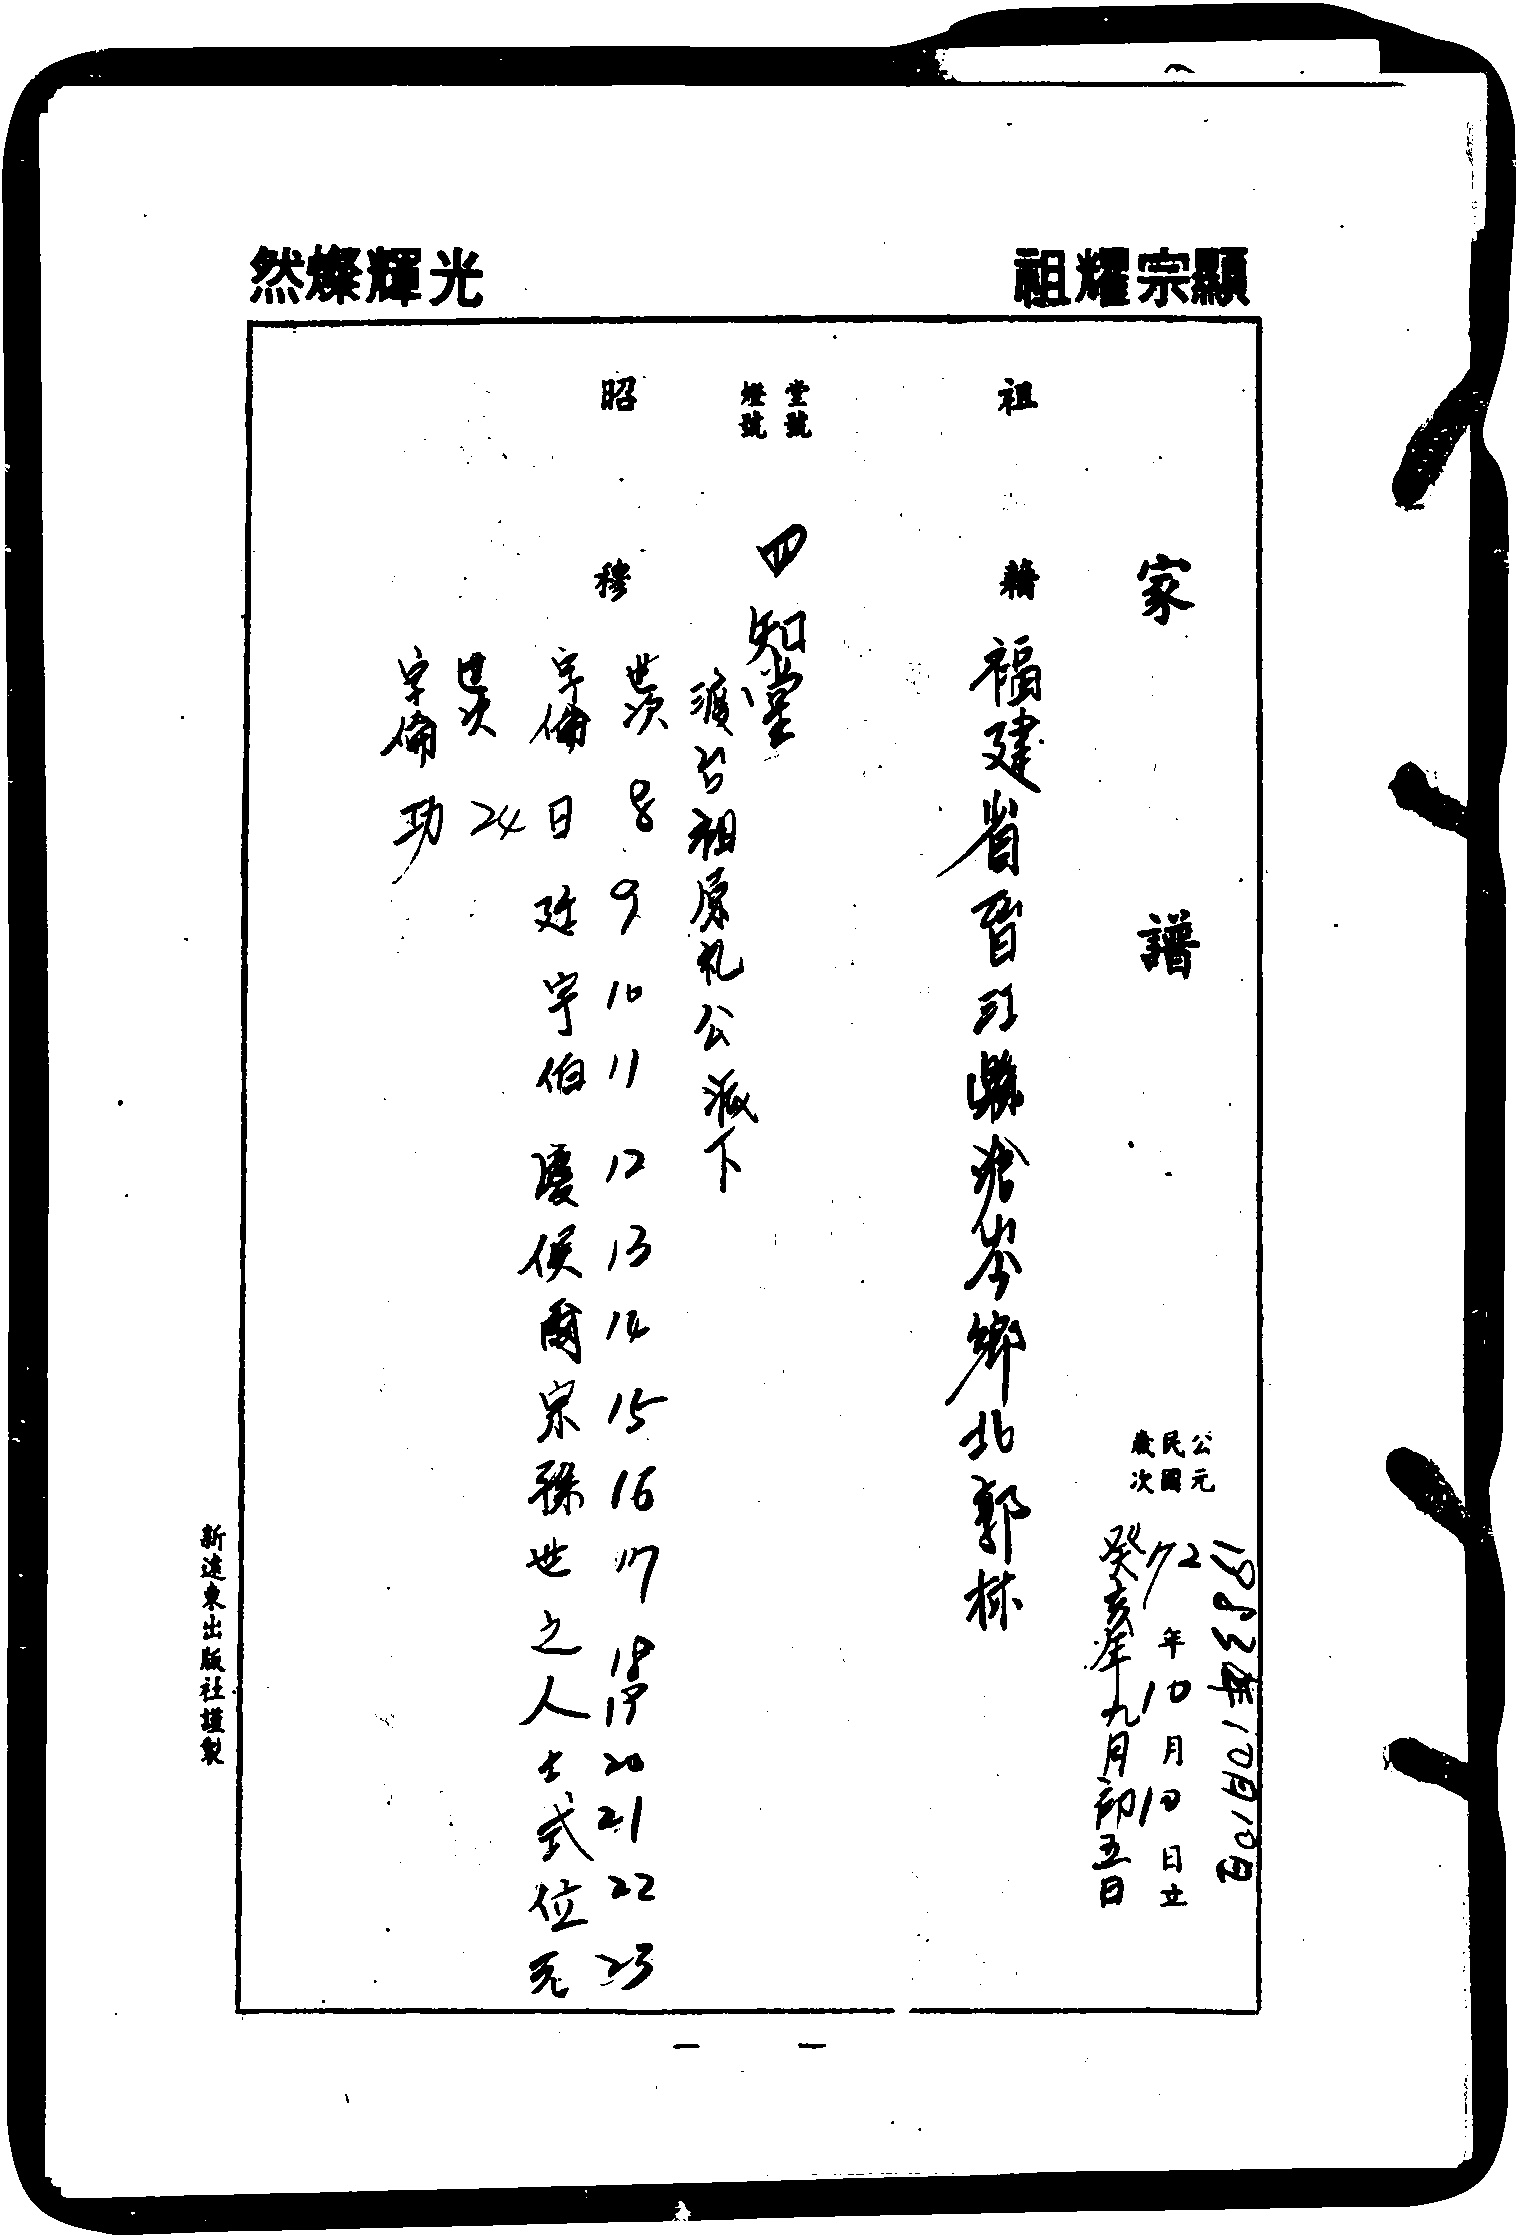 顯宗耀祖
光輝燦然
家譜
公元 1983年10月10日
民國 72年10月10日立
歲次 癸亥年九月初五日
祖籍 福建省晉江縣滄岑鄉北郭林
堂號 四知堂
燈號
渡台祖原礼公派下
昭穆
世次 8 9 10 11 12 13 14 15 16 17 18 19 20 21 22 23
字倫 日 廷 宇 伯 慶 侯 爾 宗 孫 世 之 人 士 式 位 元
世次 24
字倫 功
新遠東出版社謹製
一 一